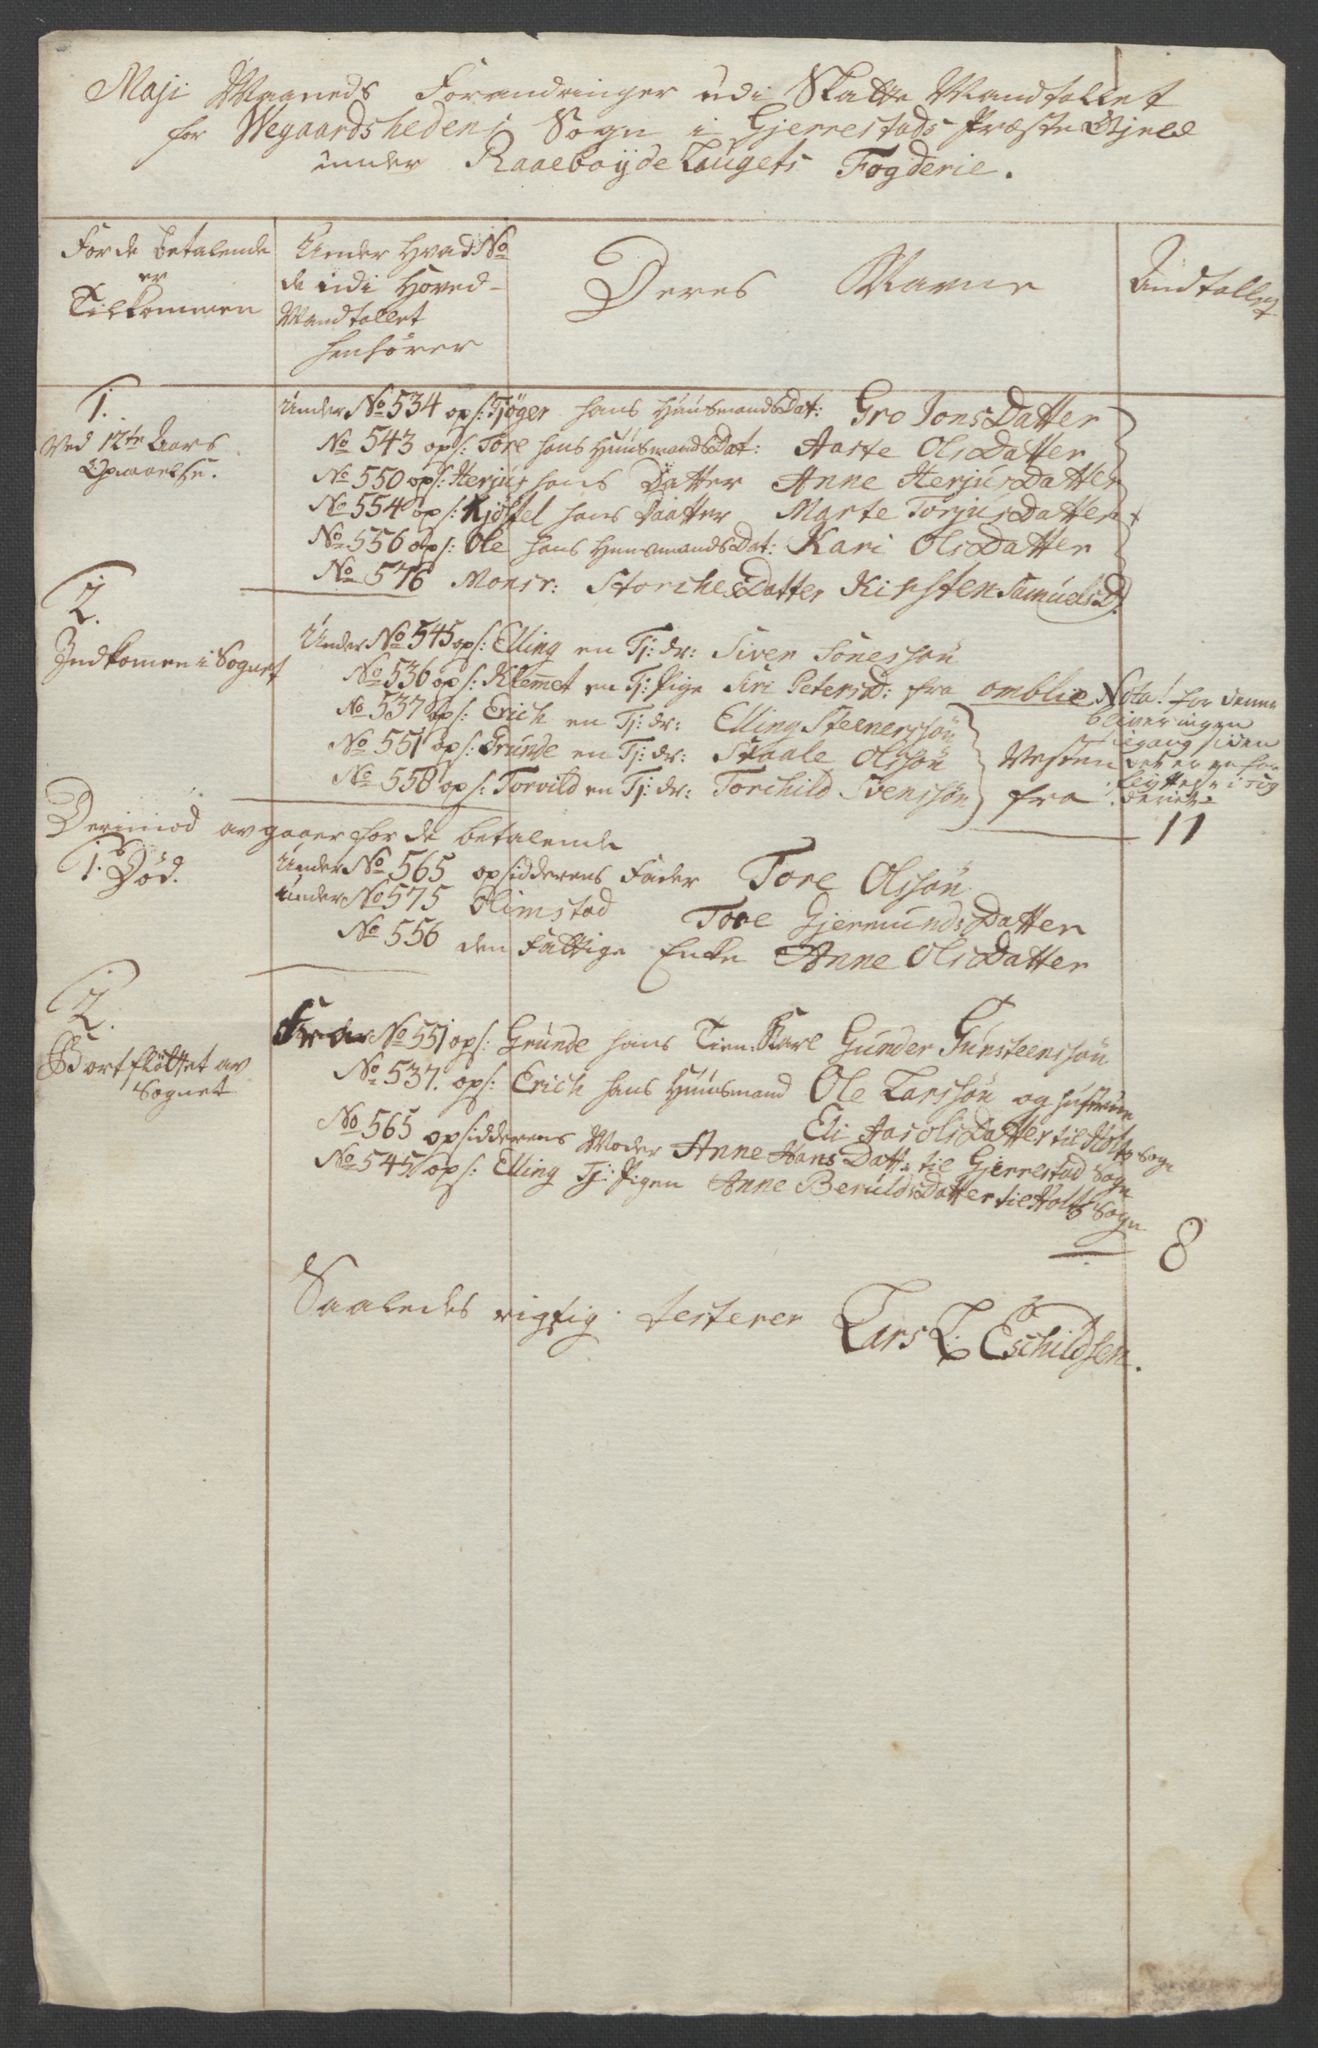 Maji Maaneds Forandringer udi Skatte Mandtallet
for Wegaardshedens Sogn i Gjerrestads Præste Gield
under Raaebøyde Laugets Fogderie.
For de betalende
er
Tilkommen
Under hvad No
de udi Hoved-
Mandtallet
henhører
Deres Navne
Andtallet
1.
Ved 12te Aars
Opnaaelse.
Under No 534 ops: Tjøger hans HuusmandsDat: Gro JonsDatter
No 543 ops: Tore hans HuusmandsDat: Aaste OlsDatter
No 550 ops: Herjus hans Datter Anne HerjusDatter
No 554 ops: Kjøstel hans Daatter Marte TorjusDatter
No 556 ops: Ole hans HuusmandsDat: Kari OlsDatter
No 576 Monsr: Storches Datter Kirsten SamuelsD.
2.
Indkomen i Sognet
Under No 545 ops: Elling en Tj: dr: Siver Sonessøn
No 536 ops: Klemmet en Tj: Pige Siri Petersd: fra omblie Nota! for denne
bliver ingen
No 537 ops: Erich en Tj: dr: Elling Steenerssøn
tilgang siden
No 551 ops: Grunde en Tj: dr: Staale Olssøn Vesten
det er en for
No 558 ops: Torvild en Tj: dr: Torchild Svenssøn fra
flyttelse i
11
Derimod avgaaer for de betalende
1. Død.
Under No 565 opsidderens Fader Tore Olssøn
under No 575 Olimstad Tore GjermundsDatter
No 556 den fattige Encke Anne OlsDatter
2.
Bortfløttet av
Sognet
No 551 ops: Grunde hans Tien: Karl Gunder Gunsteenssøn
No 537. ops: Erich hans Huusmand Ole Larssøn og hustrue
Eli AasolsDatter til Holts Sogn
No 565 opsidderens Moder Anne Hans Datt: til Gjerrestad Sogn
No 545 ops: Elling Tj: Pigen Anne BeruldsDatter til Holts Sogn
8
Saaledes rigtig testerer Lars L: Eschildsen.